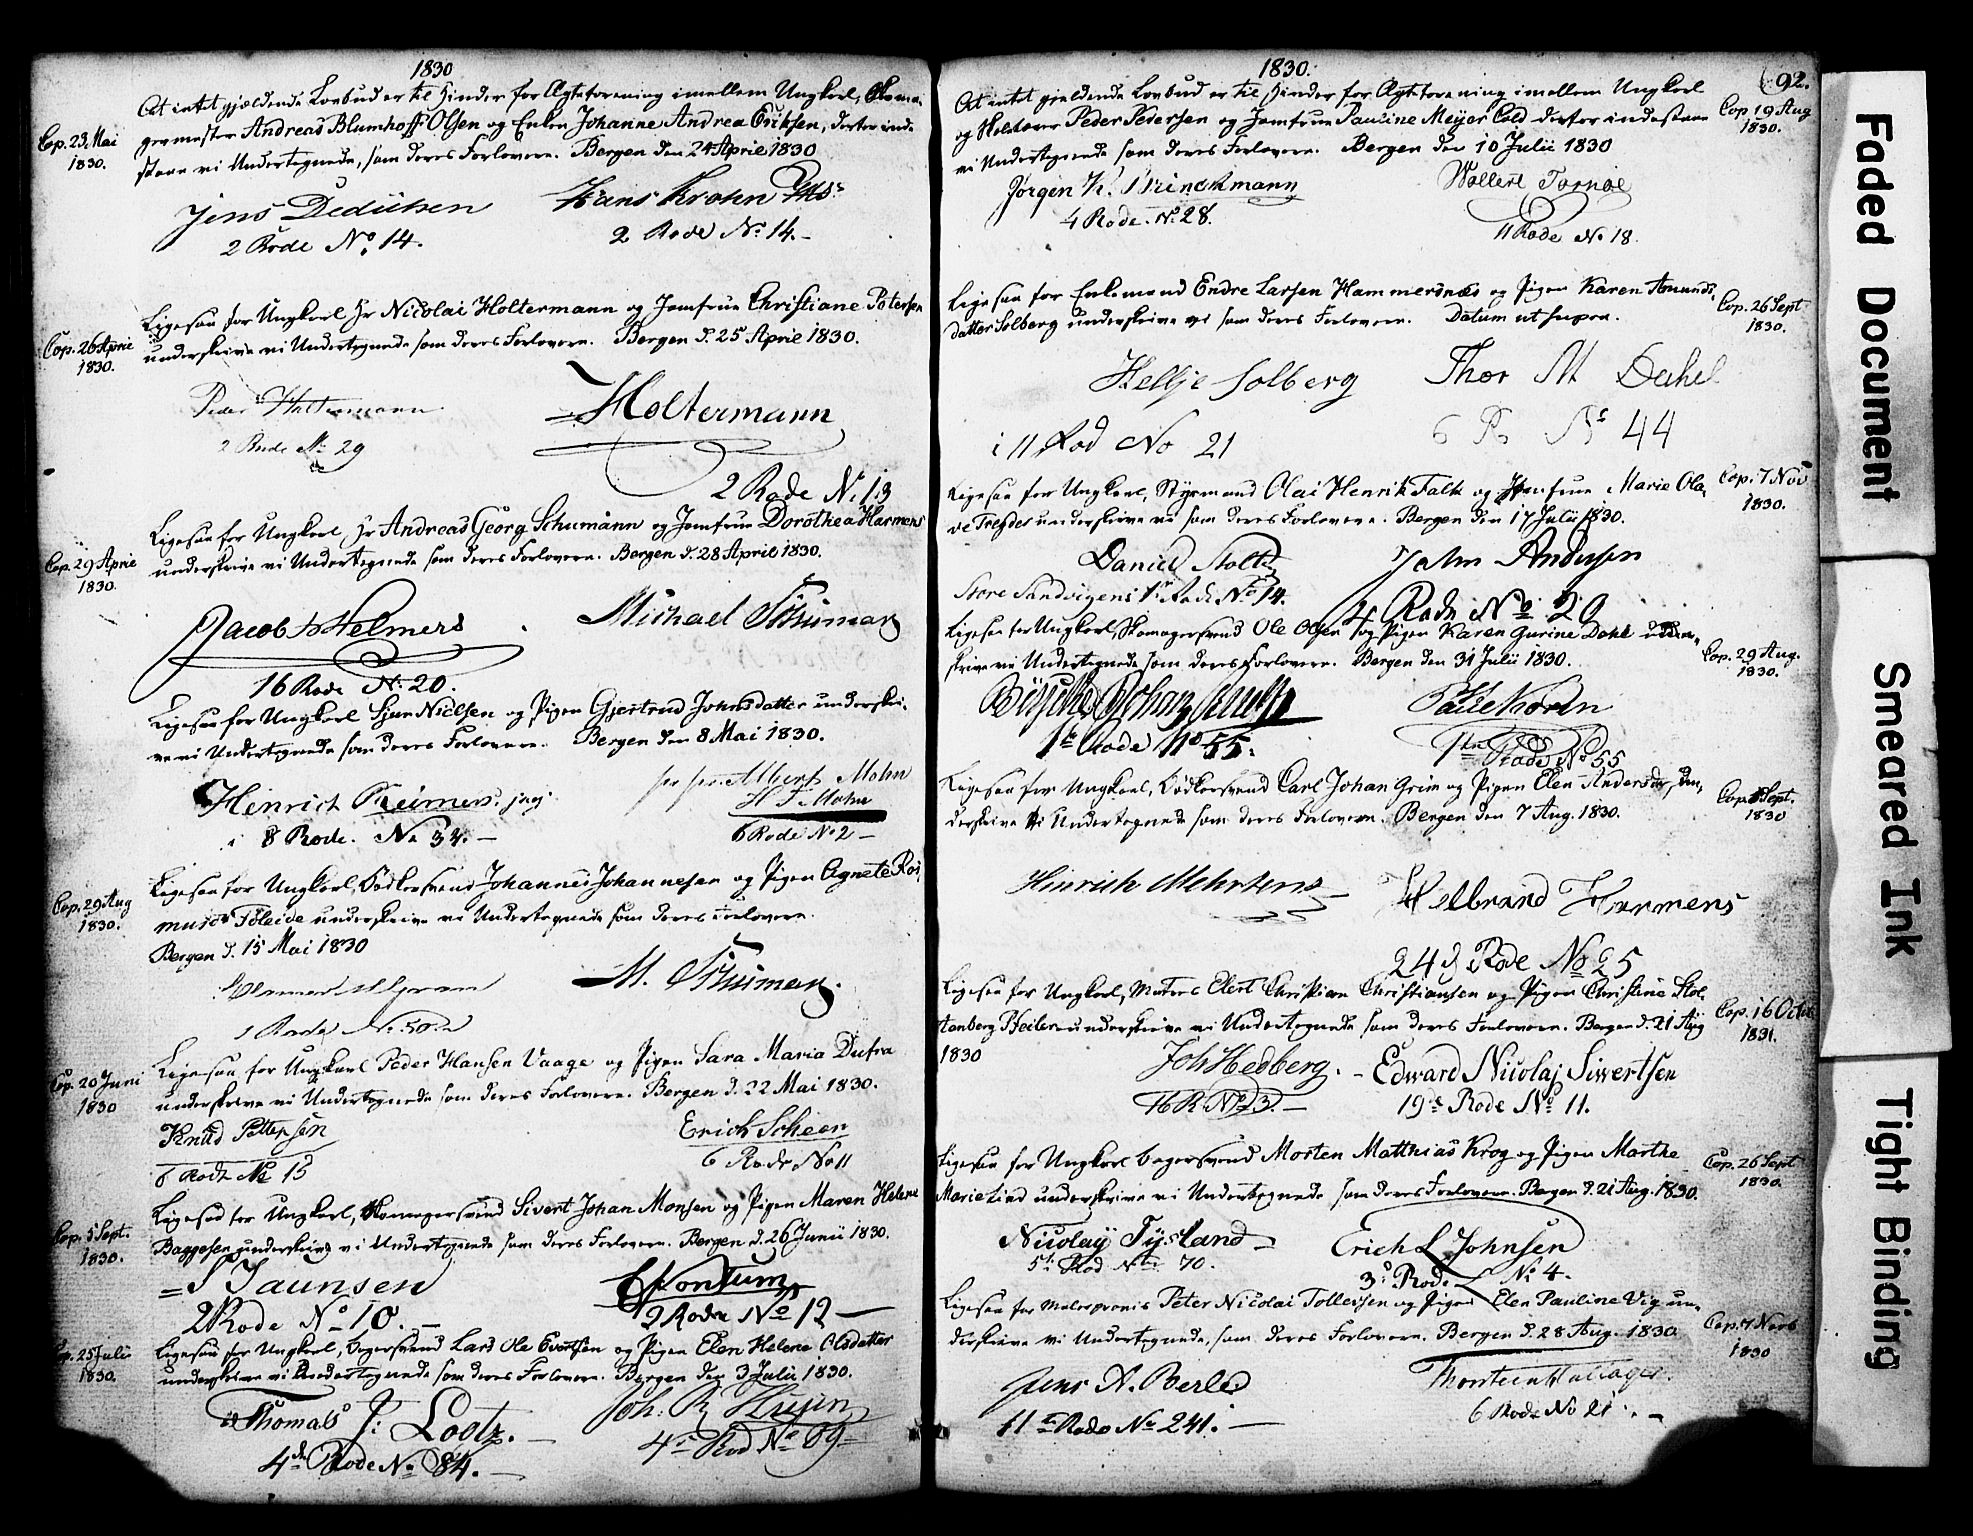 1830
At intet gjældende Lovbud er til Hinder for Ægteforening imellem Ungkarl, Skoma-
germester Andreas Blumhoff Olsen og Enken Johanne Andrea Eriksen, derfor inde
staae vi Undertegnede, som deres Forlovere. Bergen den 24 April 1830
Cop. 23 Mai
1830.
Jens Dedichen
Hans Krohn
2 Rode No 14.
2 Rode No 14.
Ligesaa for Ungkarl Hr Nicolai Holtermann og Jomfrue Christiane Petersen
underskrive vi Undertegnede som deres Forlovere. Bergen d. 25 April 1830.
Cop. 26 April
1830.
Peder Holtermann
Holtermann
2 Rode No 29
2 Rode No 13
Ligesaa for Ungkarl, Hr Andreas Georg Schumann og Jomfrue Dorothea Harmens
underskrive vi Undertegnede som deres Forlovere. Bergen d. 28 April 1830.
Cop. 29 April
1830.
Jacob Helmers
Michael
16 Rode No 20.
Ligesaa for Ungkarl Sjur Nielsen og Pigen Gjertrud Johnsdatter underskri-
ve vi Undertegnede som deres Forlovere. Bergen den 8 Mai 1830.
Hinrich Reimers. junj
pr pr. Albert Mohn
H F Mohn
i 8 Rode. No 34.
6 Rode No 2
Ligesaa for Ungkarl, Bødkersvend Johannes Johannesen og Pigen Agnete Ras-
underskrive vi Undertegnede som deres Forlovere.
Bergen d. 15 Mai 1830
Cop. 29 Aug
1830.
M.
1 Rode No 50
Ligesaa for Ungkarl Peder Hansen Vaage og Pigen Sara Maria Dufra
underskrive vi Undertegnede som deres Forlovere. Bergen d. 22 Mai 1830.
Cop. 20 Juni
1830
Knud Pettersen
Erich Scheen
6 Rode No 15
6 Rode No 11
Ligesaa for Ungkarl, Skomagersvend Sivert Johan Monsen og Pigen Maren Helene
Baggesen underskrive vi Undertegnede som deres Forlovere. Bergen d. 26 Junii 1830.
Cop. 5 Sept.
1830.
Jaunsen
2 Rode No 10.
9 Rode No 12
Ligesaa for Ungkarl, Bagersvend Lars Ole Evertsen og Pigen Elen Helene Olsdatter
underskrive vi Undertegnede som deres Forlovere. Bergen den 3 Julii 1830.
Cop. 25 Julii
1830.
Thomas J: Lootz.
Joh. R
4de Rode No 84.
4de Rod No 69
1830.
92.
At intet gjeldende Lovbud er til Hinder for Ægteforening imellem Ungkarl
og Peder Pedersen og Jomfrue Pauline Meyer Cold derfor indestaae
vi Undertegnede som deres Forlovere. Bergen den 10 Julii 1830
Cop. 19 Aug
1830.
Jørgen K. Brinckmann
Wollert Tornøe
4 Rode. No 28.
11 Rode No 18.
Ligesaa for Enkemand Endre Larsen Hammersnes og Pigen Karen Amunds-
datter Solberg underskrive vi som deres Forlovere. Datum ut supra.
Cop. 26 Sept
1830.
Hellje Solberg
Thor M Dahl
i 11 Rod No 21
6 R No 44
Ligesaa for Ungkarl, Styrmand Olai Henrik Falk og Jomfrue Marie Ola-
ve underskrive vi som deres Forlovere. Bergen den 17 Julii 1830.
Cop. 7 Nov
1830.
Daniel Stoltz
John Andersen
Store Sandvigens 1 Rode No 14.
4 Rode No 29
Ligesaa for Ungkarl, Skomagersvend Ole Olsen og Pigen Karen Gurine Dahl under-
skrive vi Undertegnede som deres Forlovere. Bergen den 31 Julii 1830.
Cop. 29 Aug.
1830.
Johan
1te Rode No 55.
1te Rode No 55
Ligesaa for Ungkarl, Bødkersvend Carl Johan Grim og Pigen Elen Andersdr, un-
derskrive vi Undertegnede som deres Forlovere. Bergen den 7 Aug. 1830.
Cop. Sept.
1830
Hinrich Mehrtens
Helbrand Harmens
24d Rode No 25
Ligesaa for Ungkarl, Matros Elert Christian Christiansen og Pigen Christine Stol-
tenberg underskrive vi Undertegnede som deres Forlovere. Bergen d. 21 Aug
1830
Cop. 16 Octbr
1831.
Joh Hedberg.
Edward Nicolaj Siwertsen
16 R. No 3.
19de Rode No 11.
Ligesaa for Ungkarl bagersvend Morten Matthias Krog og Pigen Marthe
Marie Lind underskrive vi Undertegnede som deres Forlovere. Bergen d. 21 Aug. 1830.
Cop. 26 Sept
1830.
Nicolay Tysland
Erich L Johnsen
5te Rod No 70.
3d Rode No 4.
Ligesaa for Peter Nicolai Tollevsen og Pigen Elen Pauline Vig un-
derskrive vi Undertegnede, som deres Forlovere. Bergen d. 28 Aug. 1830
Cop. 7 Novb
1830
Jens A. Berle
11te Rode No 241.
6 Rode No 21.
Faded Document
Smeared Ink
Tight Binding